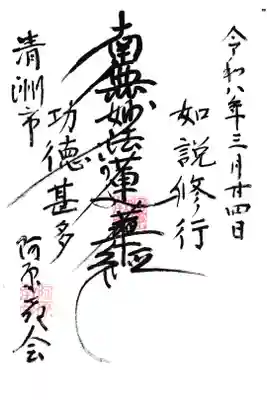 令和八年三月廿四日
如説修行
南無妙法蓮華経
功徳甚多
清洲市
阿原苑会